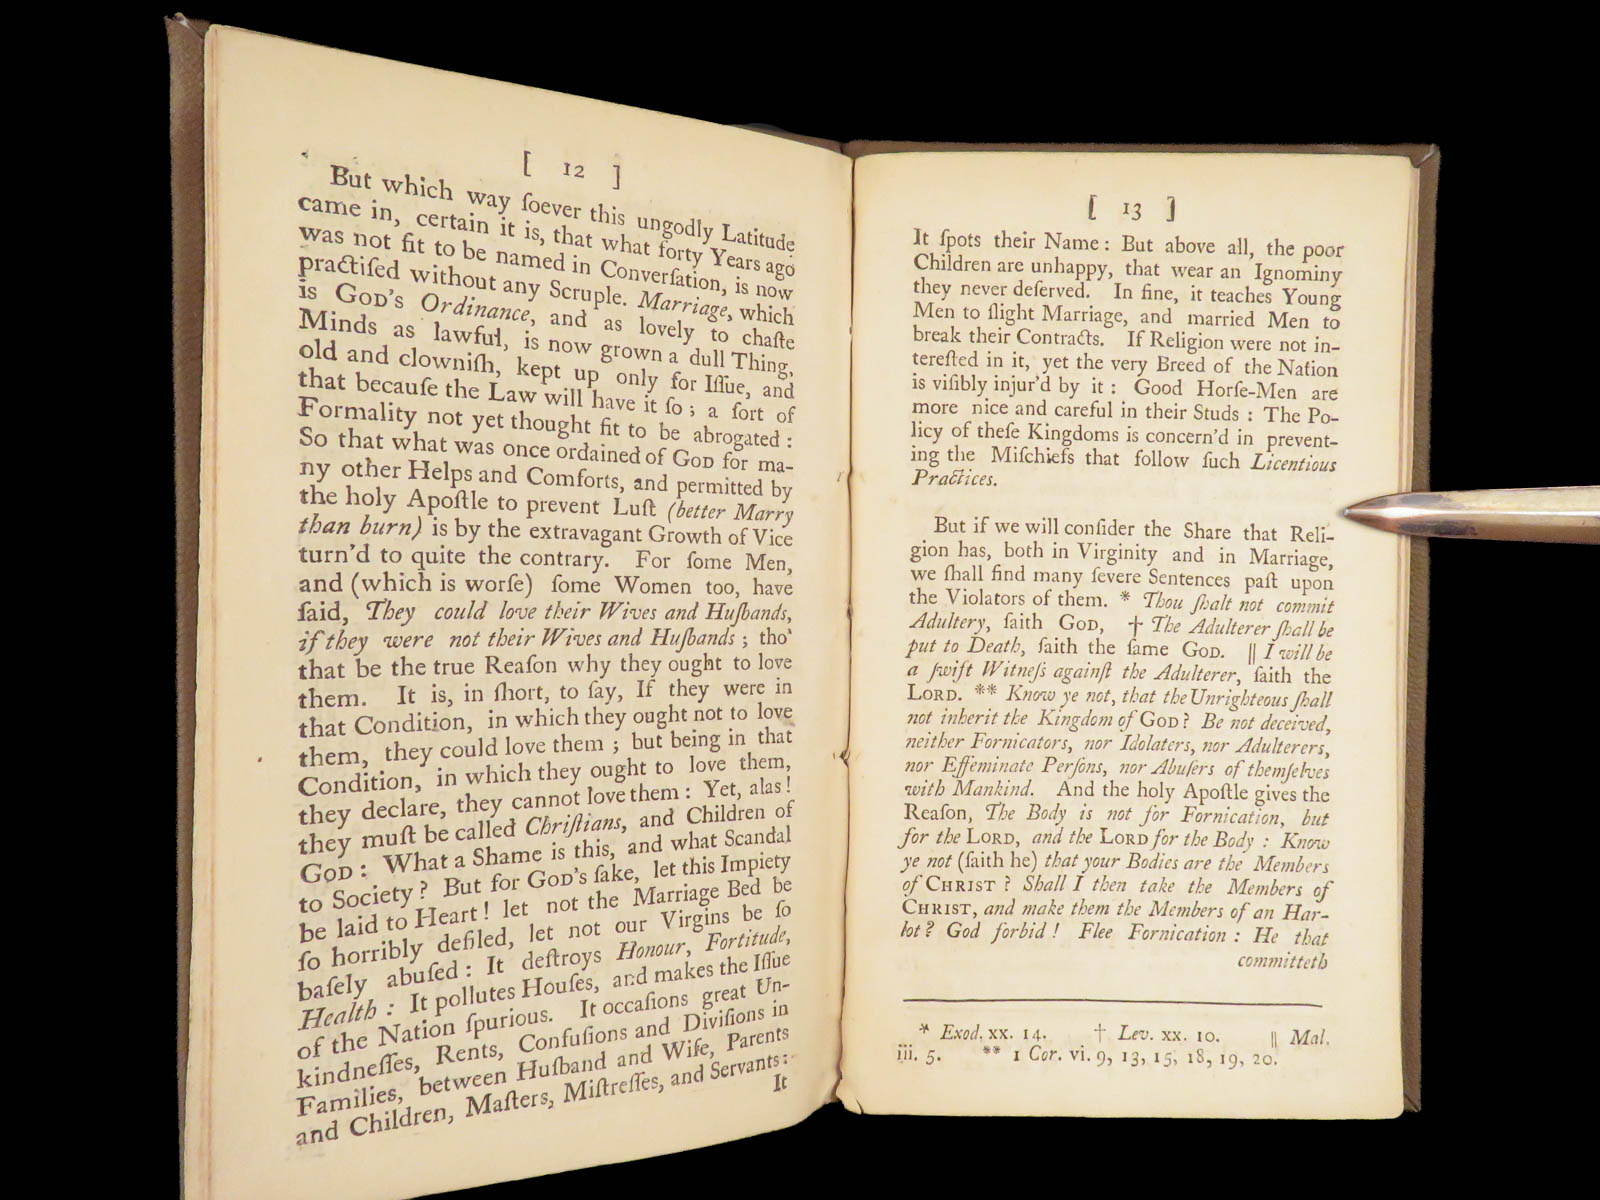 [ 12 ]
But which way ſoever this ungodly Latitude
came in, certain it is, that what forty Years ago
was not fit to be named in Converſation, is now
practiſed without any Scruple. Marriage, which
is GOD's Ordinance, and as lovely to chaſte
Minds as lawful, is now grown a dull Thing,
old and clowniſh, kept up only for Iſſue, and
that becauſe the Law will have it ſo; a ſort of
Formality not yet thought fit to be abrogated:
So that what was once ordained of GOD for ma-
ny other Helps and Comforts, and permitted by
the holy Apoſtle to prevent Luſt (better Marry
than burn) is by the extravagant Growth of Vice
turn'd to quite the contrary. For ſome Men,
and (which is worſe) ſome Women too, have
ſaid, They could love their Wives and Huſbands,
if they were not their Wives and Huſbands; tho'
that be the true Reaſon why they ought to love
them. It is, in ſhort, to ſay, If they were in
that Condition, in which they ought not to love
them, they could love them; but being in that
Condition, in which they ought to love them,
they declare, they cannot love them: Yet, alas!
they muſt be called Chriſtians, and Children of
GOD: What a Shame is this, and what Scandal
to Society? But for GOD's ſake, let this Impiety
be laid to Heart! let not the Marriage Bed be
ſo horribly defiled, let not our Virgins be ſo
baſely abuſed: It deſtroys Honour, Fortitude,
Health: It pollutes Houſes, and makes the Iſſue
of the Nation ſpurious. It occaſions great Un-
kindneſſes, Rents, Confuſions and Diviſions in
Families, between Huſband and Wife, Parents
and Children, Maſters, Miſtreſſes, and Servants:
It
[ 13 ]
It ſpots their Name: But above all, the poor
Children are unhappy, that wear an Ignominy
they never deſerved. In fine, it teaches Young
Men to ſlight Marriage, and married Men to
break their Contracts. If Religion were not in-
tereſted in it, yet the very Breed of the Nation
is viſibly injur'd by it: Good Horſe-Men are
more nice and careful in their Studs: The Po-
licy of theſe Kingdoms is concern'd in prevent-
ing the Miſchiefs that follow ſuch Licentious
Practices.
But if we will conſider the Share that Reli-
gion has, both in Virginity and in Marriage,
we ſhall find many ſevere Sentences paſt upon
the Violators of them. * Thou ſhalt not commit
Adultery, ſaith GOD, † The Adulterer ſhall be
put to Death, ſaith the ſame GOD. || I will be
a ſwift Witneſs againſt the Adulterer, ſaith the
LORD. ** Know ye not, that the Unrighteous ſhall
not inherit the Kingdom of GOD? Be not deceived,
neither Fornicators, nor Idolaters, nor Adulterers,
nor Effeminate Perſons, nor Abuſers of themſelves
with Mankind. And the holy Apoſtle gives the
Reaſon, The Body is not for Fornication, but
for the LORD, and the LORD for the Body: Know
ye not (ſaith he) that your Bodies are the Members
of CHRIST? Shall I then take the Members of
CHRIST, and make them the Members of an Har-
lot? God forbid! Flee Fornication: He that
committeth
* Exod. xx. 14. † Lev. xx. 10. || Mal.
iii. 5. ** 1 Cor. vi. 9, 13, 15, 18, 19, 20.